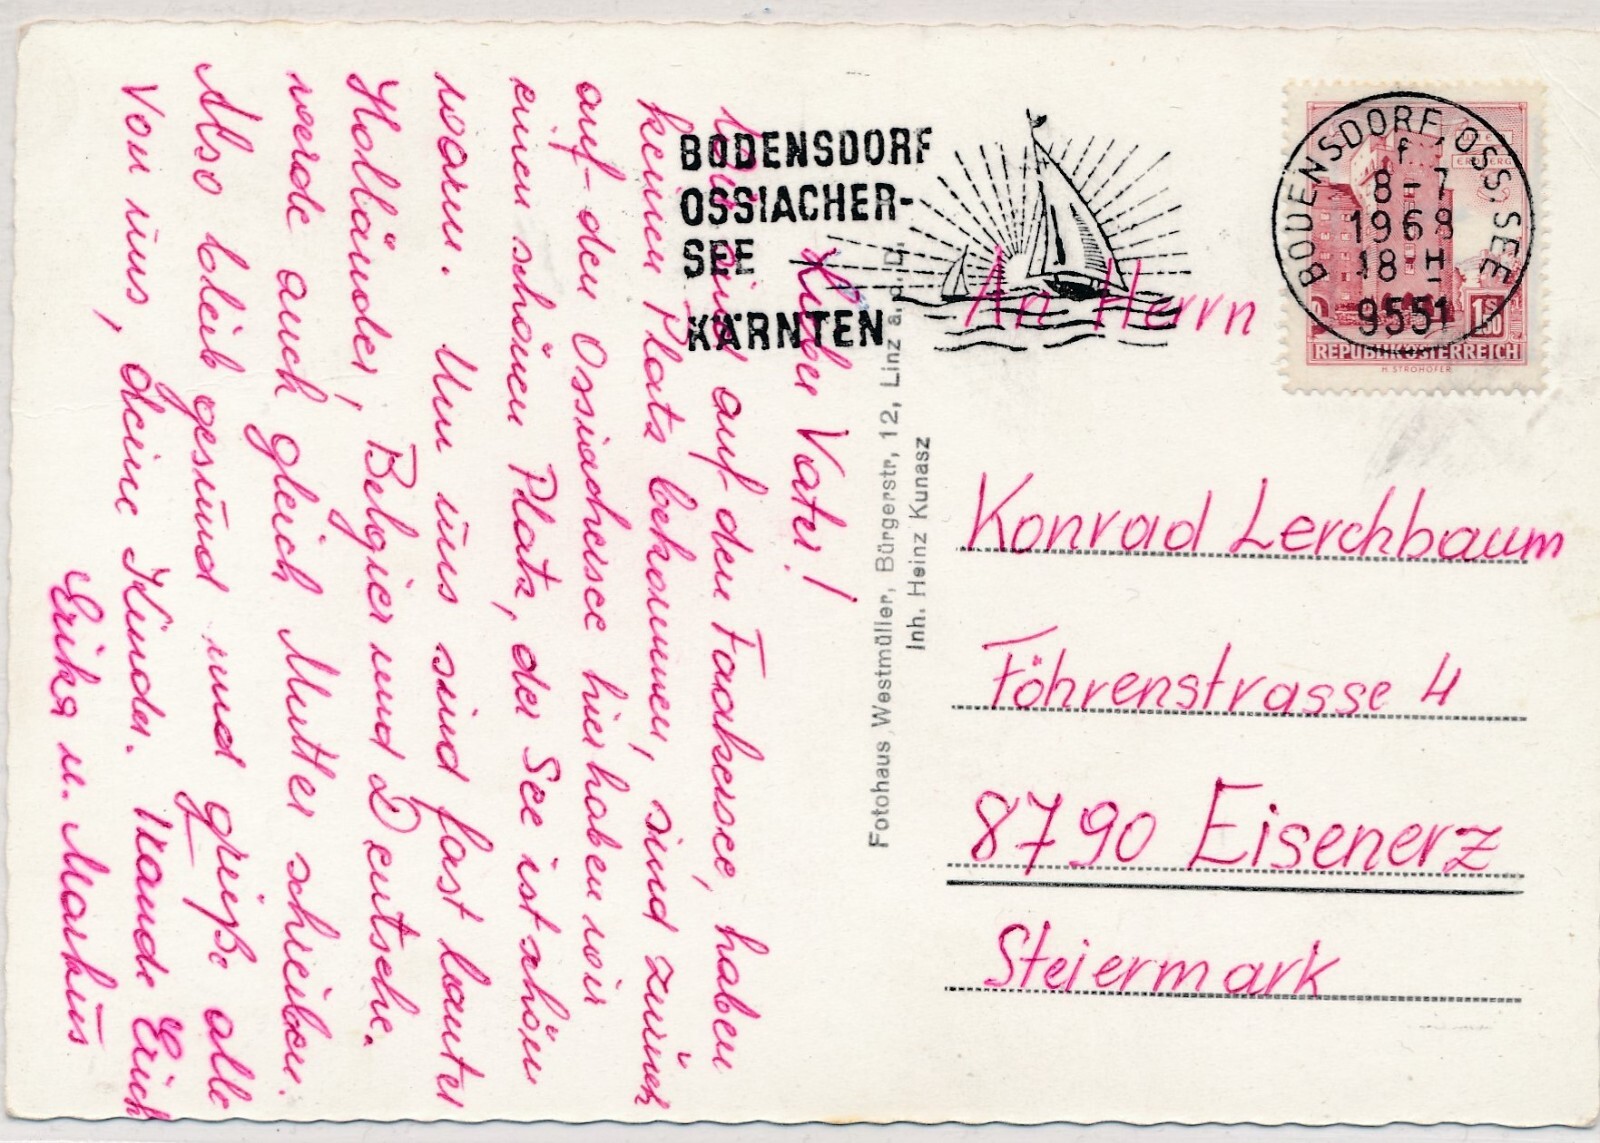 Lieber Vater!
Wir sind auf den Faakersee, haben
keinen Platz bekommen, sind zurück
auf den Ossiachersee hier haben wir
einen schönen Platz, der See ist schön
warm. Um uns sind fast lauter
Holländer, Belgier und Deutsche.
werde auch gleich Mutter schreiben.
Also bleib gesund und grüße alle
Von uns, deine Kinder. Traude Erich
Erika u. Markus
BODENSDORF
OSSIACHER-
SEE
KÄRNTEN
BODENSDORF, OSS. SEE
f
8-7
1968
18 H
9551
ERDBERG
1S50
REPUBLIK ÖSTERREICH
H. STROHOFER
Fotohaus Westmüller, Bürgerstr, 12, Linz a. d. D.
Inh. Heinz Kunasz
An Herrn
Konrad Lerchbaum
Föhrenstrasse 4
8790 Eisenerz
Steiermark